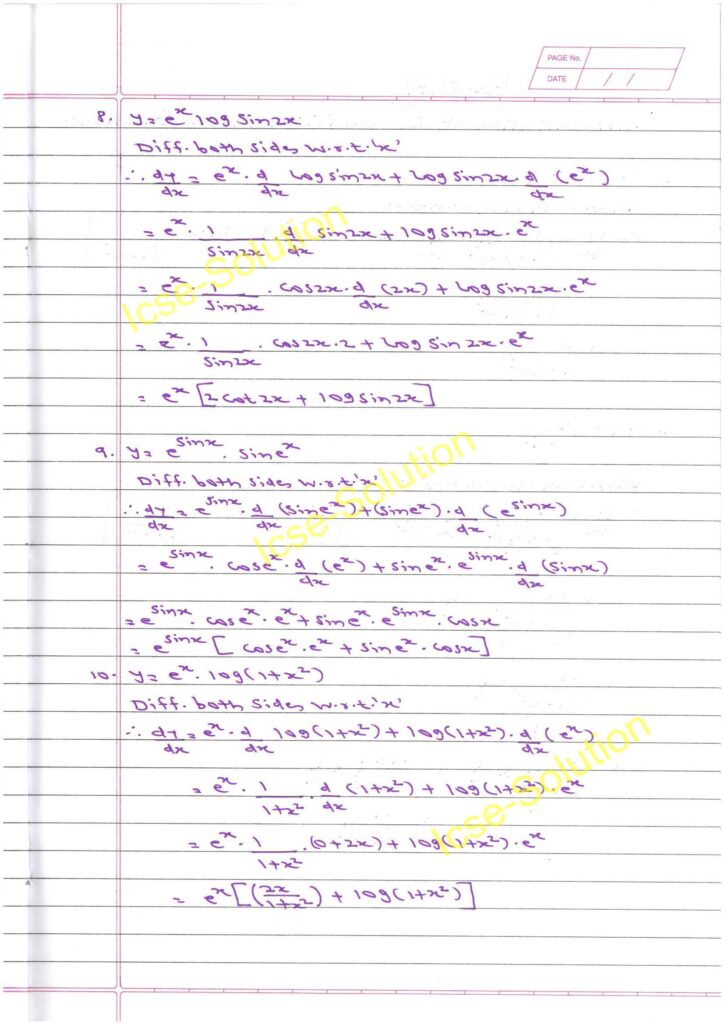 PAGE No.
DATE / /
8. y = e^x log sin2x
Diff. both sides w.r.t. 'x'
∴ dy/dx = e^x · d/dx log sin2x + log sin2x · d/dx (e^x)
= e^x · 1/sin2x · d/dx sin2x + log sin2x · e^x
= e^x · 1/sin2x · cos2x · d/dx (2x) + log sin2x · e^x
= e^x · 1/sin2x · cos2x · 2 + log sin2x · e^x
= e^x [2cot2x + log sin2x]
9. y = e^sinx · sine^x
Diff. both sides w.r.t 'x'
∴ dy/dx = e^sinx · d/dx (sine^x) + (sine^x) · d/dx (e^sinx)
= e^sinx · cose^x · d/dx (e^x) + sine^x · e^sinx · d/dx (sinx)
= e^sinx · cose^x · e^x + sine^x · e^sinx · cosx
= e^sinx [cose^x · e^x + sine^x · cosx]
10. y = e^x · log(1+x²)
Diff. both sides w.r.t. 'x'
∴ dy/dx = e^x · d/dx log(1+x²) + log(1+x²) · d/dx (e^x)
= e^x · 1/1+x² · d/dx (1+x²) + log(1+x²) · e^x
= e^x · 1/1+x² · (0+2x) + log(1+x²) · e^x
= e^x [(2x/1+x²) + log(1+x²)]
Icse-Solution
Icse-Solution
Icse-Solution